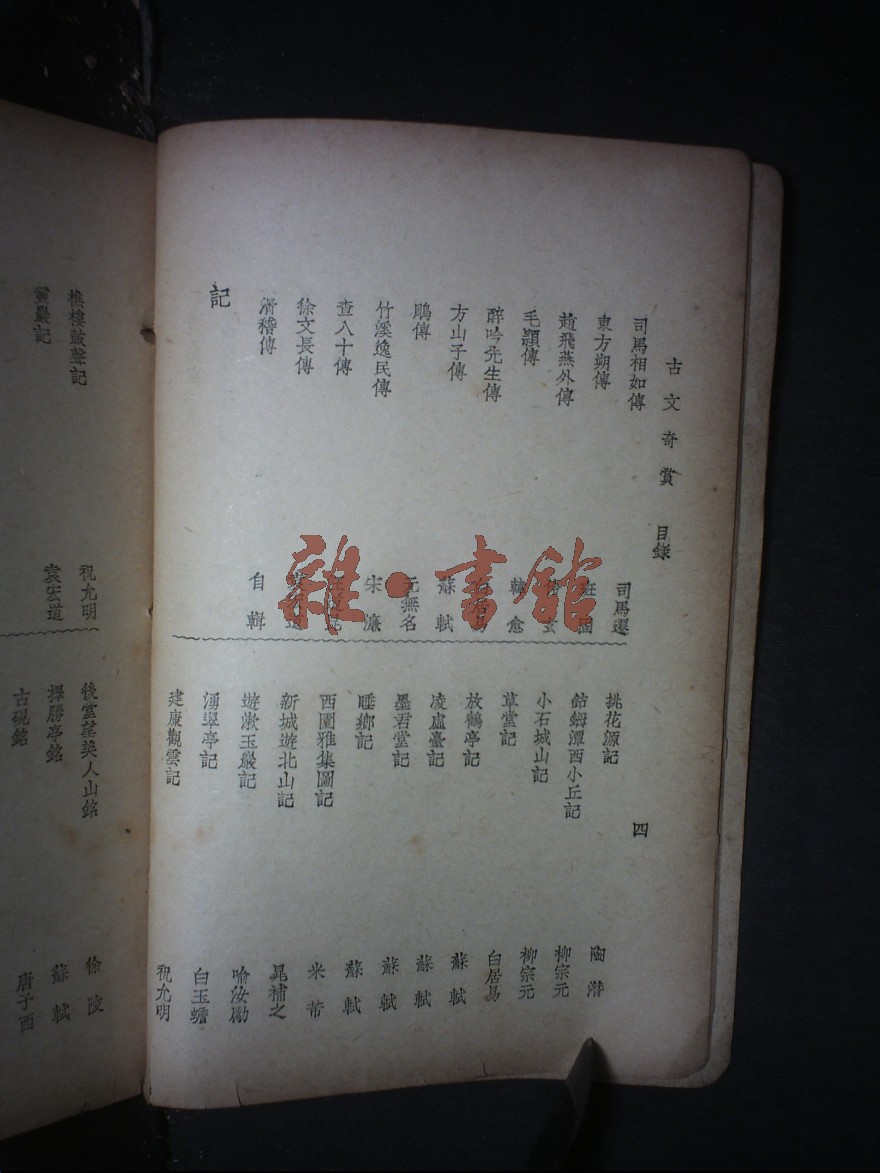 古文奇賞 目錄 四
司馬相如傳 司馬遷
東方朔傳 班固
趙飛燕外傳 玄
毛穎傳 韓愈
醉吟先生傳 白居易
方山子傳 蘇軾
鵰傳 元無名
竹溪逸民傳 宋濂
查八十傳
徐文長傳
滑稽傳 自輯
記
桃花源記 陶潛
鈷鉧潭西小丘記 柳宗元
小石城山記 柳宗元
草堂記 白居易
放鶴亭記 蘇軾
凌虛臺記 蘇軾
墨君堂記 蘇軾
睡鄉記 蘇軾
西園雅集圖記 米芾
新城遊北山記 晁補之
遊漱玉巖記 喻汝勵
湧翠亭記 白玉蟾
建康觀雲記 祝允明
樵樓鼓聲記 祝允明
靈巖記 袁宏道
後堂望美人山銘 徐陵
擇勝亭銘 蘇軾
古硯銘 唐子西
雜·書館